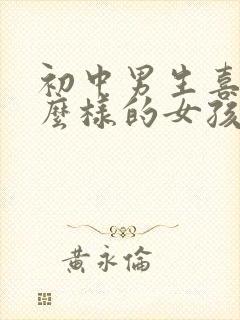 初中男生喜
麼樣的女孩
黃永倫